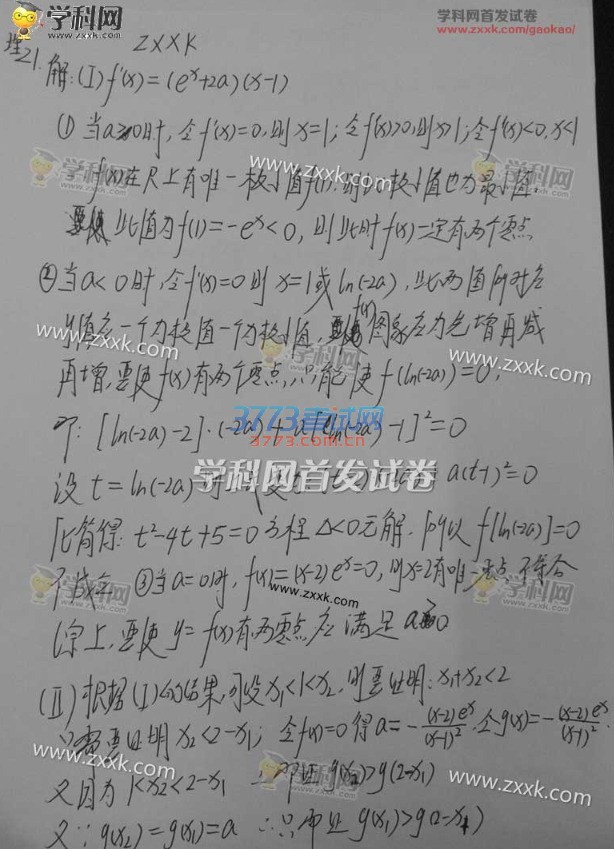 学科网 ZXXK
学科网首发试卷
www.zxxk.com/gaokao/
21. 解:(I) f'(x)=(eˣ+2a)(x-1)
① 当a>0时,令f'(x)=0,则x=1;令f'(x)>0,则x>1;令f'(x)<0,x<1
f(x)在R上有唯一极小值f(1),极小值也为最小值
此值为f(1)=-eˣ<0,则此时f(x)一定有两个零点
② 当a<0时,令f'(x)=0则x=1或ln(-2a),此两值所对应
值应一个为极值一个为极小值,f(x)图象应为先增再减
再增,要使f(x)有两个零点,只能使f(ln(-2a))=0,
即:[ln(-2a)-2]·(-2a)+a[ln(-2a)-1]²=0
设t=ln(-2a) a(t-1)²=0
化简得:t²-4t+5=0方程Δ<0无解.所以f[ln(-2a)]=0
不成立 ③当a=0时,f(x)=(x-2)eˣ=0,则x=2有唯一零点不符合
综上,要使y=f(x)有两零点应满足a>0
(II)根据(I)的结果,可设x₁<1<x₂,则要证明:x₁+x₂<2
只需要证明x₂<2-x₁;令f(x)=0得a=-(x-2)eˣ/(x-1)².令g(x)=-(x-2)eˣ/(x-1)².
又因为1<x₂<2-x₁ 即证g(x₂)>g(2-x₁)
又∵g(x₂)=g(x₁)=a ∴只需证g(x₁)>g(2-x₁)
学科网
www.zxxk.com
学科网
www.zxxk.com
学科网
www.zxxk.com
3773考试网
3773.com.cn
学科网首发试卷
学科网
www.zxxk.com
学科网
www.zxxk.com
学科网
www.zxxk.com
学科网